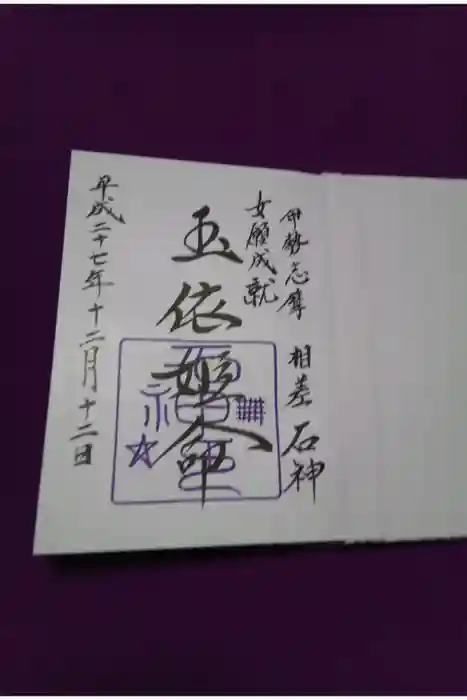 伊勢志摩 相差 石神
女願成就
玉依姫命
平成二十七年十二月十二日